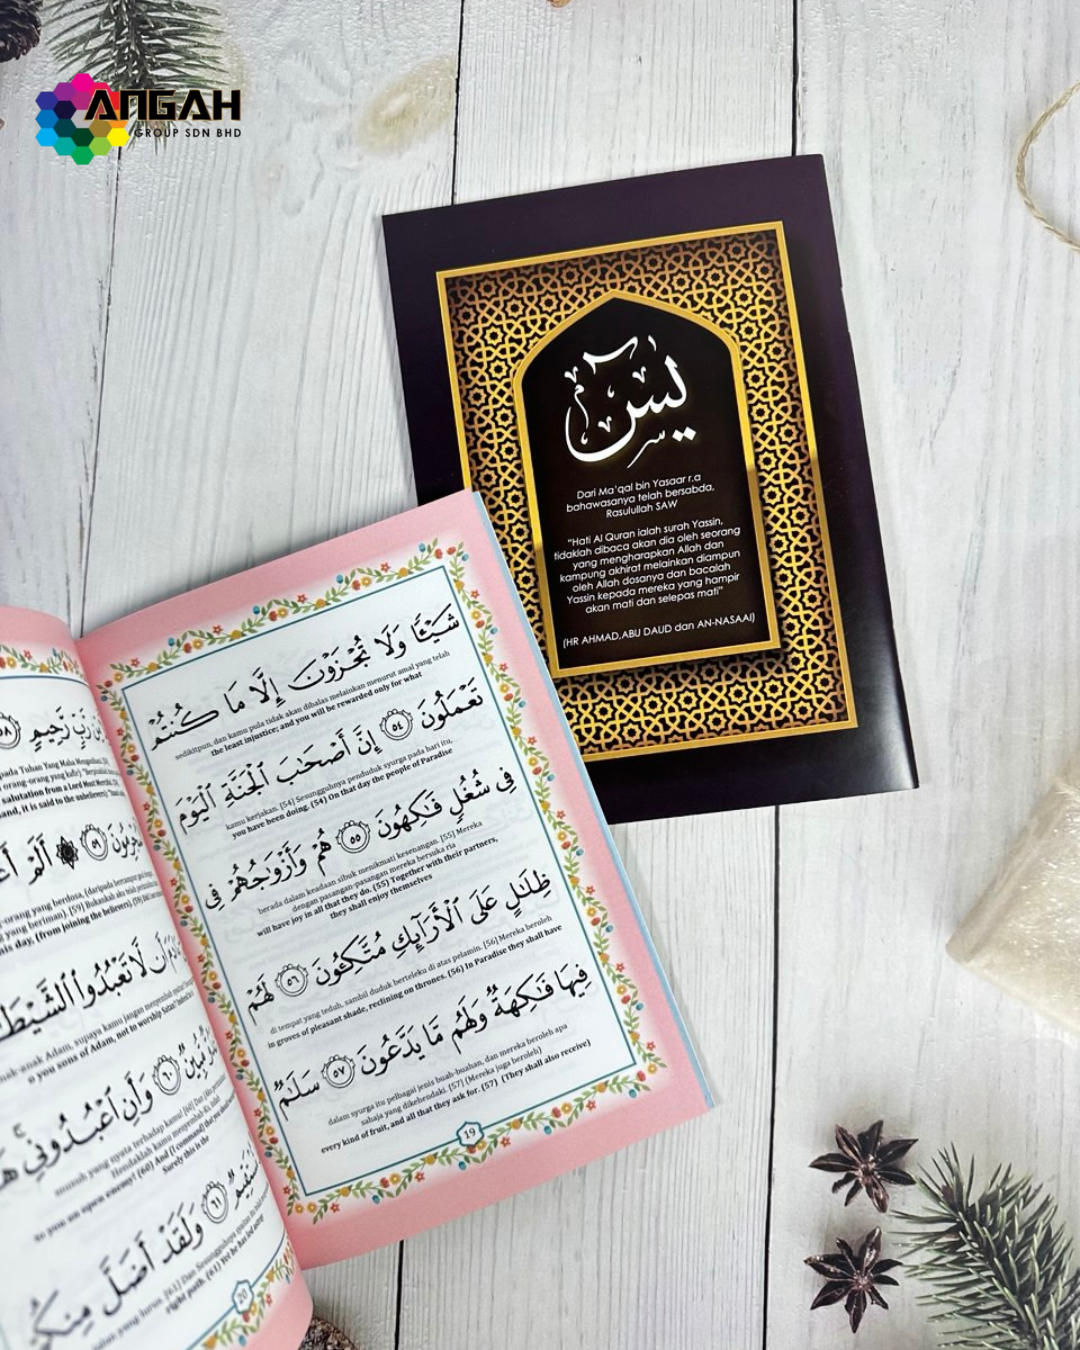 ANGAH
GROUP SDN BHD
يس
Dari Ma'qal bin Yasaar r.a
bahawasanya telah bersabda,
Rasulullah SAW
"Hati Al Quran ialah surah Yassin,
tidaklah dibaca akan dia oleh seorang
yang mengharapkan Allah dan
kampung akhirat melainkan diampun
oleh Allah dosanya dan bacalah
Yassin kepada mereka yang hampir
akan mati dan selepas mati"
(HR AHMAD,ABU DAUD dan AN-NASAAI)
شَيْـًٔا وَلَا تُجْزَوْنَ إِلَّا مَا كُنتُمْ
sedikitpun, dan kamu pula tidak akan dibalas melainkan menurut amal yang telah
the least injustice; and you will be rewarded only for what
تَعْمَلُونَ ٥٤ إِنَّ أَصْحَٰبَ ٱلْجَنَّةِ ٱلْيَوْمَ
kamu kerjakan. [54] Sesungguhnya penduduk syurga pada hari itu,
you have been doing. (54) On that day the people of Paradise
فِى شُغُلٍ فَٰكِهُونَ ٥٥ هُمْ وَأَزْوَٰجُهُمْ فِى
berada dalam keadaan sibuk menikmati kesenangan. [55] Mereka
dengan pasangan-pasangan mereka bersuka ria
will have joy in all that they do. (55) Together with their partners,
they shall enjoy themselves
ظِلَٰلٍ عَلَى ٱلْأَرَآئِكِ مُتَّكِـُٔونَ ٥٦ لَهُمْ
di tempat yang teduh, sambil duduk berteleku di atas pelamin. [56] Mereka beroleh
in groves of pleasant shade, reclining on thrones. (56) In Paradise they shall have
فِيهَا فَٰكِهَةٌ وَلَهُم مَّا يَدَّعُونَ ٥٧ سَلَٰمٌ
dalam syurga itu pelbagai jenis buah-buahan, dan mereka beroleh apa
sahaja yang dikehendaki. [57] (Mereka juga beroleh)
every kind of fruit, and all that they ask for. (57) (They shall also receive)
19
رَّبٍّ رَّحِيمٍ ٥٨
pada Tuhan Yang Maha Mengasihani.
salutation from a Lord Most Merciful.
٥٩ أَلَمْ
orang yang berdosa,
yang beriman). [59]
this day, (from joining the believers).
أَن لَّا تَعْبُدُوا۟ ٱلشَّيْطَٰ
Adam, supaya kamu jangan menyembah
you sons of Adam, not to worship Satan
مُّبِينٌ ٦٠ وَأَنِ ٱعْبُدُونِى
musuh yang nyata terhadap kamu! [60]
Hendaklah kamu menyembah
to you an open enemy! (60) And (I command)
Surely this is the
٦١ وَلَقَدْ أَضَلَّ مِنكُ
yang lurus. [61] Dan Sesungguhnya
right path. (61) Yet he has led astray
20